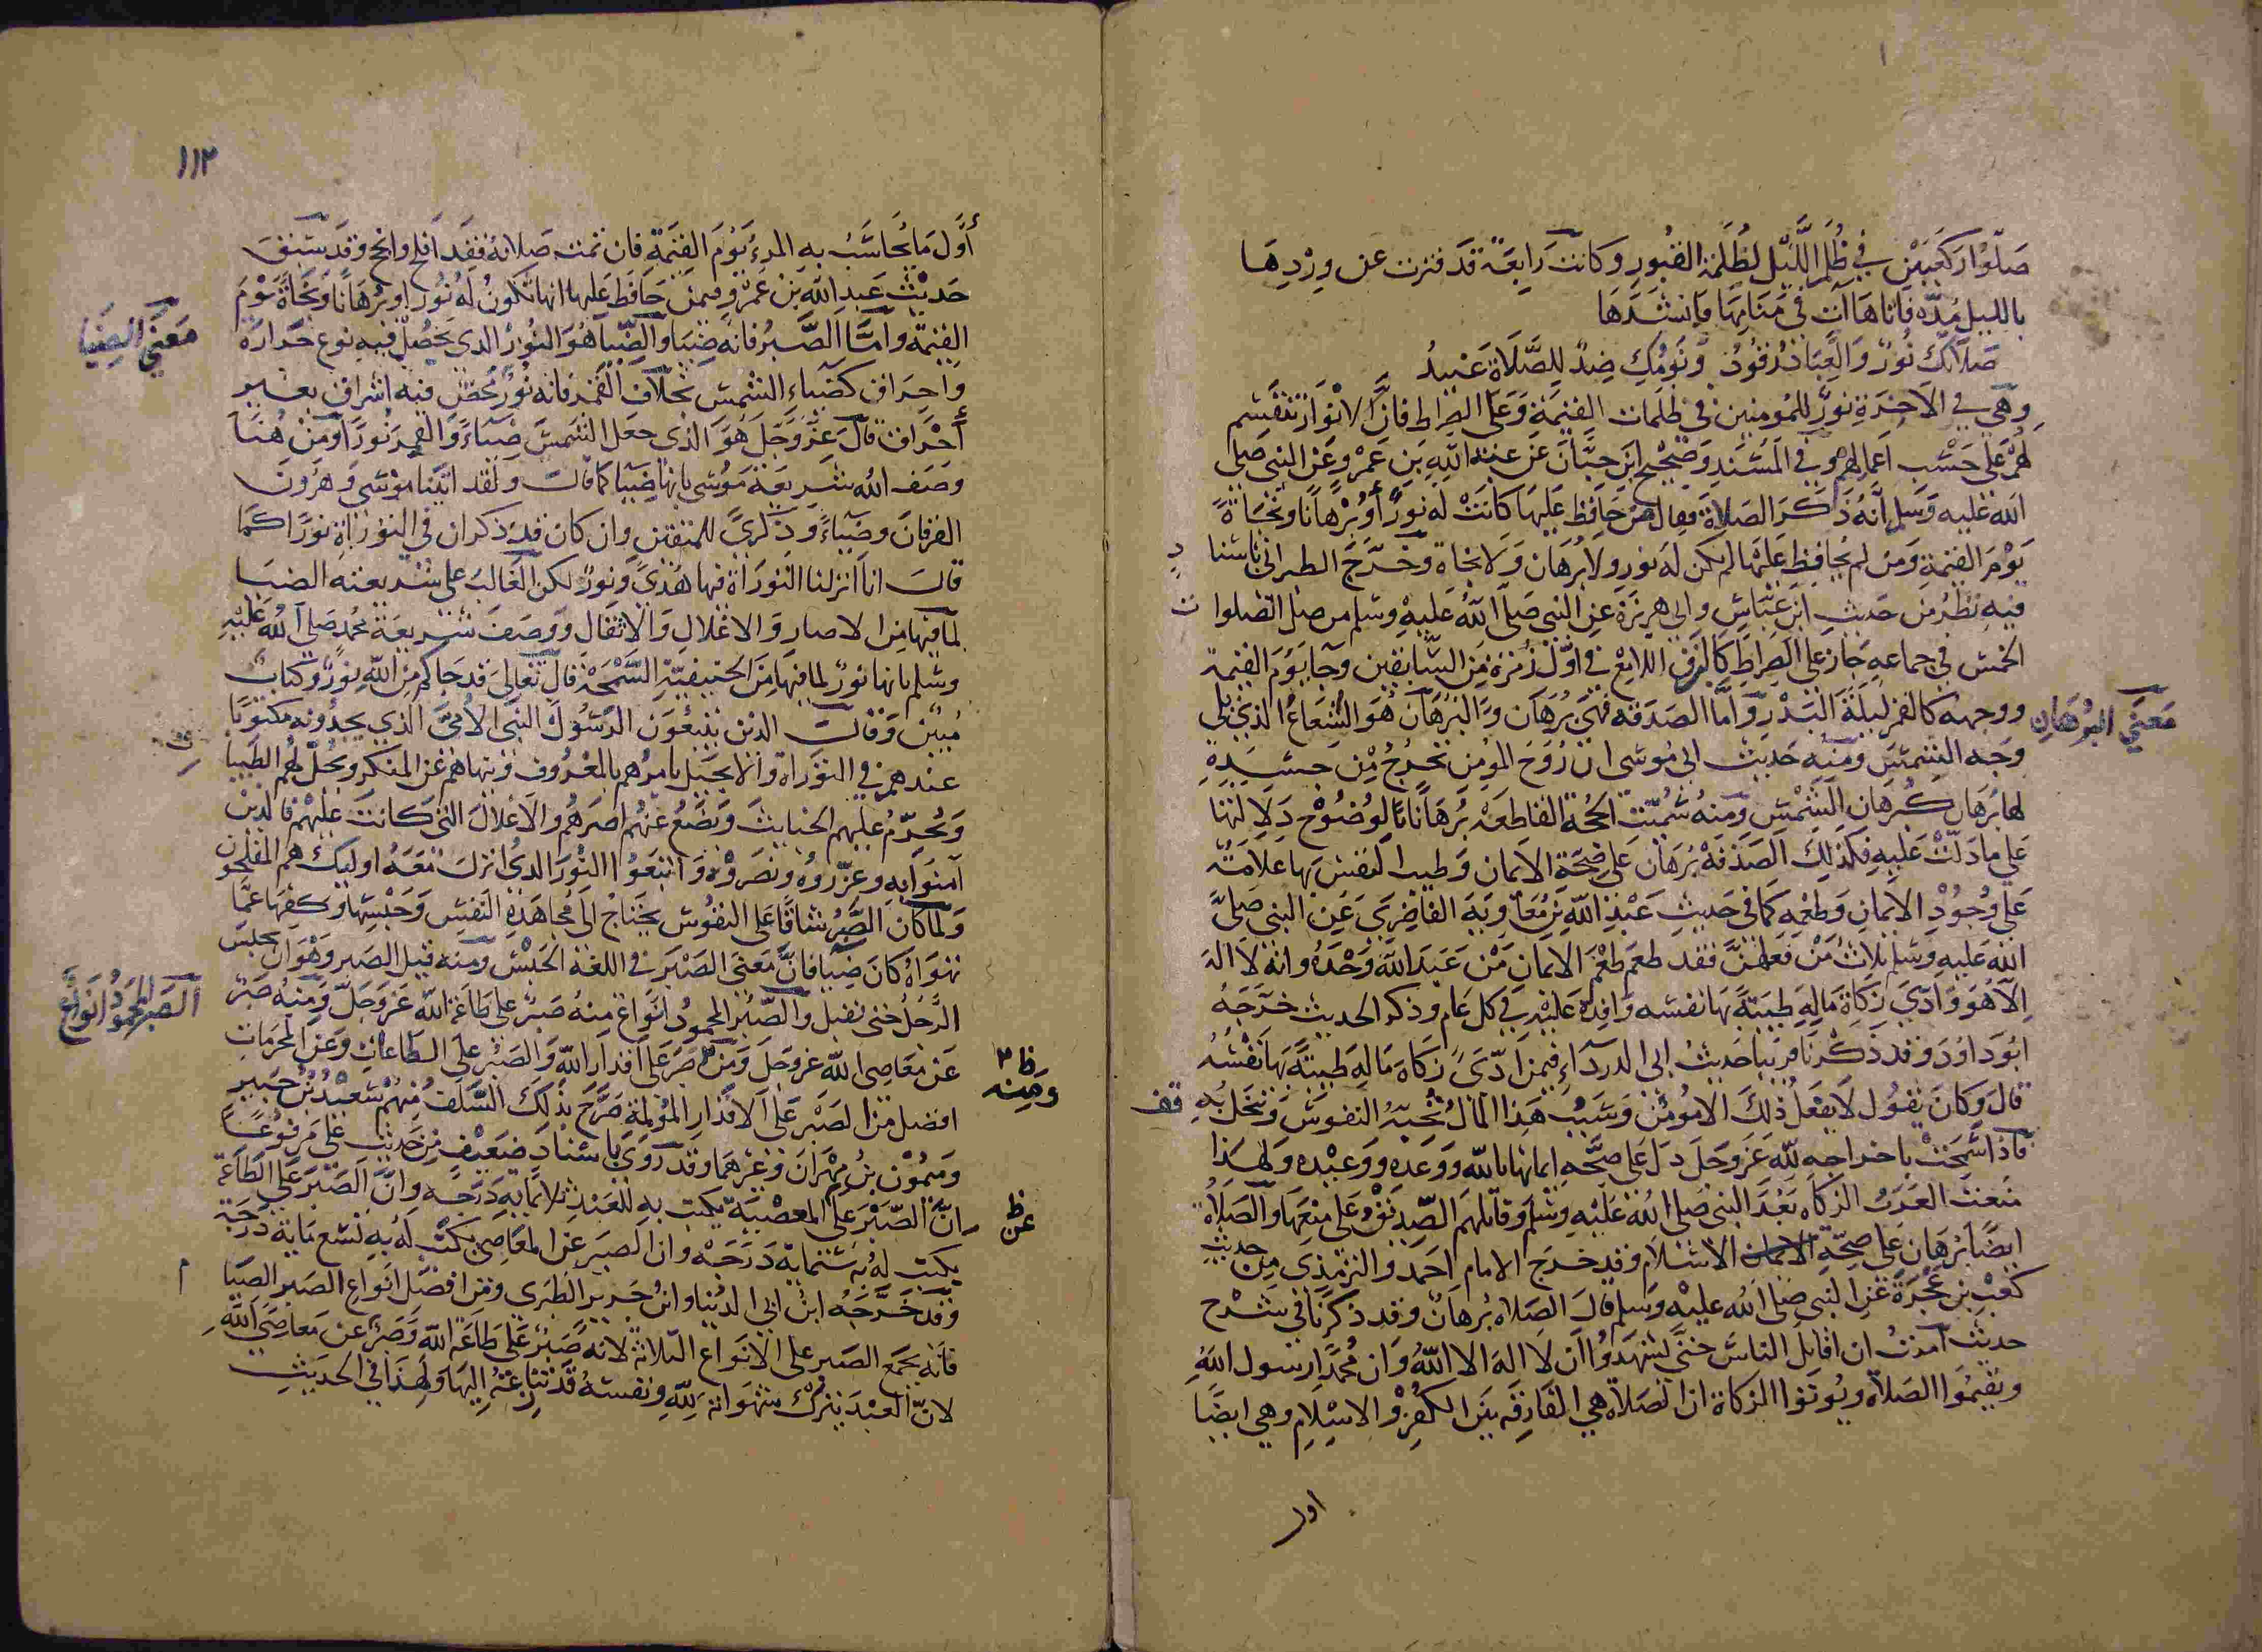 صلّوا ركعتين في ظلم الليل لظلمة القبور وكانت رابعة قد فترت عن وردها
بالليل مدّه فاتاها آت في منامها فانشدها
صلاتك نور والعباد رقود ونومك ضد للصلاة عنيد
وهي في الاخرة نور للمومنين في ظلمات القيمة وعلى الصراط فان الانوار تقسم
لهم على حسب اعمالهم وفي المسند وصحيح ابن حبان عن عبد الله بن عمرو عن النبي صلى
الله عليه وسلم انه ذكر الصلاة فقال من حافظ عليها كانت له نورا وبرهانا ونجاة
يوم القيمة ومن لم يحافظ عليها لم يكن له نور ولا برهان ولا نجاة وخرج الطبراني باسنا د
فيه نظر من حديث ابن عباس وابي هريرة عن النبي صلى الله عليه وسلم من صلى الصلوا ت
الخمس في جماعه جاز على الصراط كالبرق اللامع في اول زمرة من السابقين وجا يوم القيمة
ووجهه كالقمر ليلة البدر واما الصدقه فهي برهان والبرهان هو الشعاع الذي يلي
معنى البرهان
وجه الشمس ومنه حديث ابي موسى ان روح المومن تخرج من جسده
لها برهان كبرهان الشمس ومنه سميت الحجة القاطعه برهانا لوضوح دلالتها
على ما دلت عليه فكذلك الصدقة برهان على صحة الايمان وطيب النفس بها علامة
على وجود الايمان وطعمه كما في حديث عبد الله بن معاوية الغاضري عن النبي صلى
الله عليه وسلم ثلاث من فعلهن فقد طعم طعم الايمان من عبد الله وحده وانه لا اله
الا هو وادى زكاة ماله طيبة بها نفسه وافدة عليه في كل عام وذكر الحديث خرجه
ابو داود وقد ذكرنا قريبا حديث ابي الدرداء فيمن ادى زكاة ماله طيبة بها نفسه
قال وكان يقول لا يفعل ذلك الا مومن وسبب هذا ان المال تحبه النفوس وتبخل به
قف
فاذا سمحت باخراجه لله عز وجل دل على صحة ايمانها بالله ووعده ووعيده ولهذا
منعت العرب الزكاة بعد النبي صلى الله عليه وسلم وقاتلهم الصديق على منعها والصلاة
ايضا برهان على صحة الاسلام وقد خرج الامام احمد والترمذي من حديث
كعب بن عجرة عن النبي صلى الله عليه وسلم قال الصلاة برهان وقد ذكرنا في شرح
حديث امرت ان اقاتل الناس حتى يشهدوا ان لا اله الا الله وان محمدا رسول الله
ويقيموا الصلاة ويوتوا الزكاة ان الصلاة هي الفارقه بين الكفر والاسلام وهي ايضا
اول
١١٢
أول ما يحاسب به المرء يوم القيمة فان تمت صلاته فقد افلح وانجح وقد سبق
حديث عبد الله بن عمرو فيمن حافظ عليها انها تكون له نورا وبرهانا ونجاة يوم
القيمة واما الصبر فانه ضيا والضيا هو النور الذي يحصل فيه نوع حرارة
معنى الضيا
واحراق كضياء الشمس بخلاف القمر فانه نور محض فيه اشراق بغير
أحراق قال عز وجل هو الذي جعل الشمس ضياء والقمر نورا ومن هنا
وصف الله شريعة موسى بانها ضيا كما قال ولقد اتينا موسى وهرون
الفرقان وضياء وذكرى للمتقين وان كان قد ذكر ان في التوراة نورا كما
قال انا انزلنا التوراة فيها هدى ونور لكن الغالب على شريعته الضيا
لما فيها من الاصار والاغلال والاثقال ووصف شريعة محمد صلى الله عليه
وسلم بانها نور لما فيها من الحنيفية السمحة قال تعالى قد جاكم من الله نور وكتاب
مبين وقال الذين يتبعون الرسول النبي الامي الذي يجدونه مكتوبا
عندهم في التوراة والانجيل يامرهم بالمعروف وينهاهم عن المنكر ويحل لهم الطيبا
ويحرم عليهم الخبايث ويضع عنهم اصرهم والاغلال التي كانت عليهم فالذين
آمنوا به وعزروه ونصروه واتبعوا النور الذي انزل معه اوليك هم المفلحون
ولما كان الصبر شاقا على النفوس يحتاج الى مجاهدة النفس وحبسها وكفها عما
تهواه كان ضيا فان معنى الصبر في اللغة الحبس ومنه قتيل الصبر وهو ان يحبس
الرجل حتى يقتل والصبر المحمود انواع منه صبر على طاعة الله عز وجل ومنه صبر
الصبر المحمود انواع
عن معاصي الله عز وجل ومن صبر على اقدار الله والصبر على الطاعات وعن المحرمات
ومنه
ظ
افضل من الصبر على الاقدار المولمة صرح بذلك السلف منهم سعيد بن جبير
وميمون بن مهران وغيرهما وقد روي باسناد ضعيف من حديث علي مرفوعا
ان الصبر على المعصية يكتب به للعبد ثلاثماية درجه وان الصبر على الطاعة
عن
ظ
يكتب له به ستماية درجه وان الصبر عن المعاصي يكتب له به تسع ماية درجة
وقد خرجه ابن ابي الدنيا وابن جرير الطبري ومن افضل انواع الصبر الصيا م
فانه يجمع الصبر على الانواع الثلاثة لانه صبر على طاعة الله وصبر عن معاصي الله
لان العبد يترك شهواته لله ونفسه قد تنازعه اليها ولهذا في الحديث